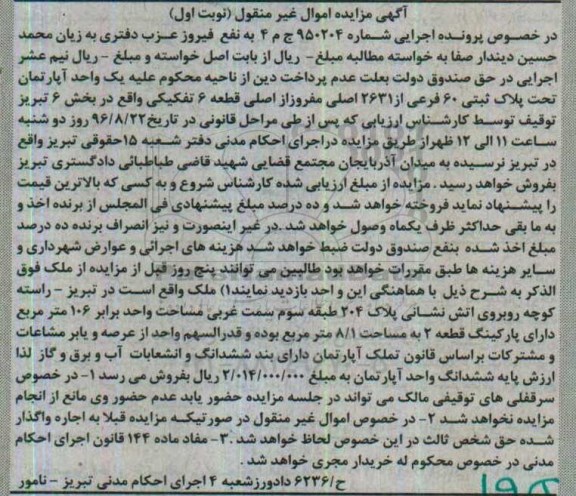 آگهی مزایده اموال غیر منقول (نوبت اول)
در خصوص پرونده اجرایی شماره ۹۵۰۲۰۴ ج م ۴ به نفع فیروز عزب دفتری به زیان محمد
حسین دیندار صفا به خواسته مطالبه مبلغ - ریال از بابت اصل خواسته و مبلغ - ریال نیم عشر
اجرایی در حق صندوق دولت بعلت عدم پرداخت دین از ناحیه محکوم علیه یک واحد آپارتمان
تحت پلاک ثبتی ۶۰ فرعی از۲۶۳۱ اصلی مفروزاز اصلی قطعه ۶ تفکیکی واقع در بخش ۶ تبریز
توقیف توسط کارشناس ارزیابی که پس از طی مراحل قانونی در تاریخ۹۶/۸/۲۲ روز دو شنبه
ساعت ۱۱ الی ۱۲ ظهراز طریق مزایده دراجرای احکام مدنی دفتر شعبه ۱۵حقوقی تبریز واقع
در تبریز نرسیده به میدان آذربایجان مجتمع قضایی شهید قاضی طباطبائی دادگستری تبریز
بفروش خواهد رسید . مزایده از مبلغ ارزیابی شده کارشناس شروع و به کسی که بالاترین قیمت
را پیشنهاد نماید فروخته خواهد شد و ده درصد مبلغ پیشنهادی فی المجلس از برنده اخذ و
به ما بقی حداکثر ظرف یکماه وصول خواهد شد .در غیر اینصورت و نیز انصراف برنده ده درصد
مبلغ اخذ شده بنفع صندوق دولت ضبط خواهد شد هزینه های اجرائی و عوارض شهرداری و
سایر هزینه ها طبق مقررات خواهد بود طالبین می توانند پنج روز قبل از مزایده از ملک فوق
الذکر به شرح ذیل با هماهنگی این و احد بازدید نمایند۱) ملک واقع است در تبریز - راسته
کوچه روبروی اتش نشانی پلاک ۲۰۴ طبقه سوم سمت غربی مساحت واحد برابر ۱۰۶ متر مربع
دارای پارکینگ قطعه ۲ به مساحت ۸/۱ متر مربع بوده و قدرالسهم واحد از عرصه و یابر مشاعات
و مشترکات براساس قانون تملک آپارتمان دارای بند ششدانگ و انشعابات آب و برق و گاز لذا
ارزش پایه ششدانگ واحد آپارتمان به مبلغ ۲/۰۱۴/۰۰۰/۰۰۰ ریال بفروش می رسد ۱- در خصوص
سرقفلی های توقیفی مالک می تواند در جلسه مزایده حضور یابد عدم حضور وی مانع از انجام
مزایده نخواهد شد ۲- در خصوص اموال غیر منقول در صورتیکه مزایده قبلا به اجاره واگذار
شده حق شخص ثالث در این خصوص لحاظ خواهد شد .۳- مفاد ماده ۱۴۴ قانون اجرای احکام
مدنی در خصوص محکوم له خریدار مجری خواهد شد .
ح/۶۲۳۶ دادورزشعبه ۴ اجرای احکام مدنی تبریز - نامور